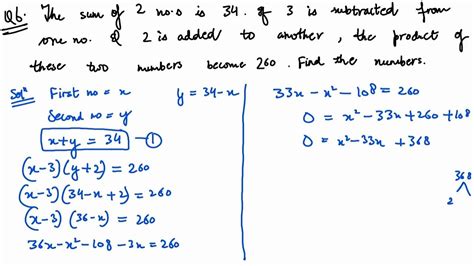 Q6. The sum of 2 no.s is 34. If 3 is subtracted from
one no. & 2 is added to another, the product of
these two numbers become 260. Find the numbers.
Solⁿ First no = x
y = 34-x
Second no = y
x+y = 34 - ①
(x-3)(y+2) = 260
(x-3)(34-x+2) = 260
(x-3)(36-x) = 260
36x-x²-108-3x = 260
33x-x²-108 = 260
0 = x²-33x+260+108
0 = x²-33x+368
368
2